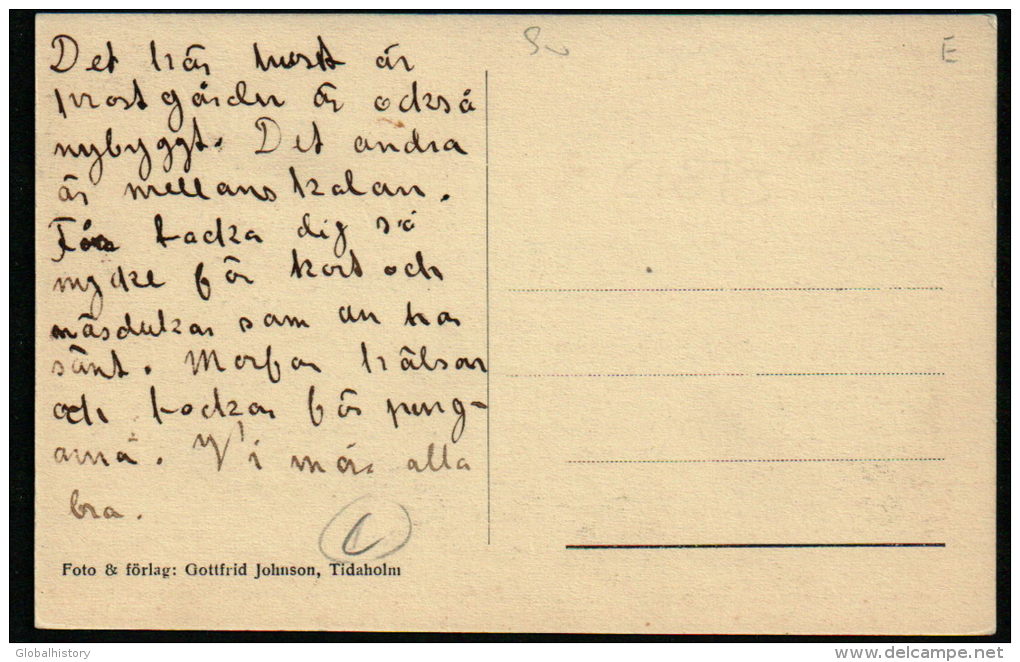 Det här huset är
prostgården är också
nybyggt. Det andra
är mellanskolan.
Får tacka dig så
mycke för kort och
näsdukar som du har
sänt. Morfar hälsar
och tackar för peng-
arna. Vi mår alla
bra.
Foto & förlag: Gottfrid Johnson, Tidaholm
E
Globalhistory
www.delcampe.net